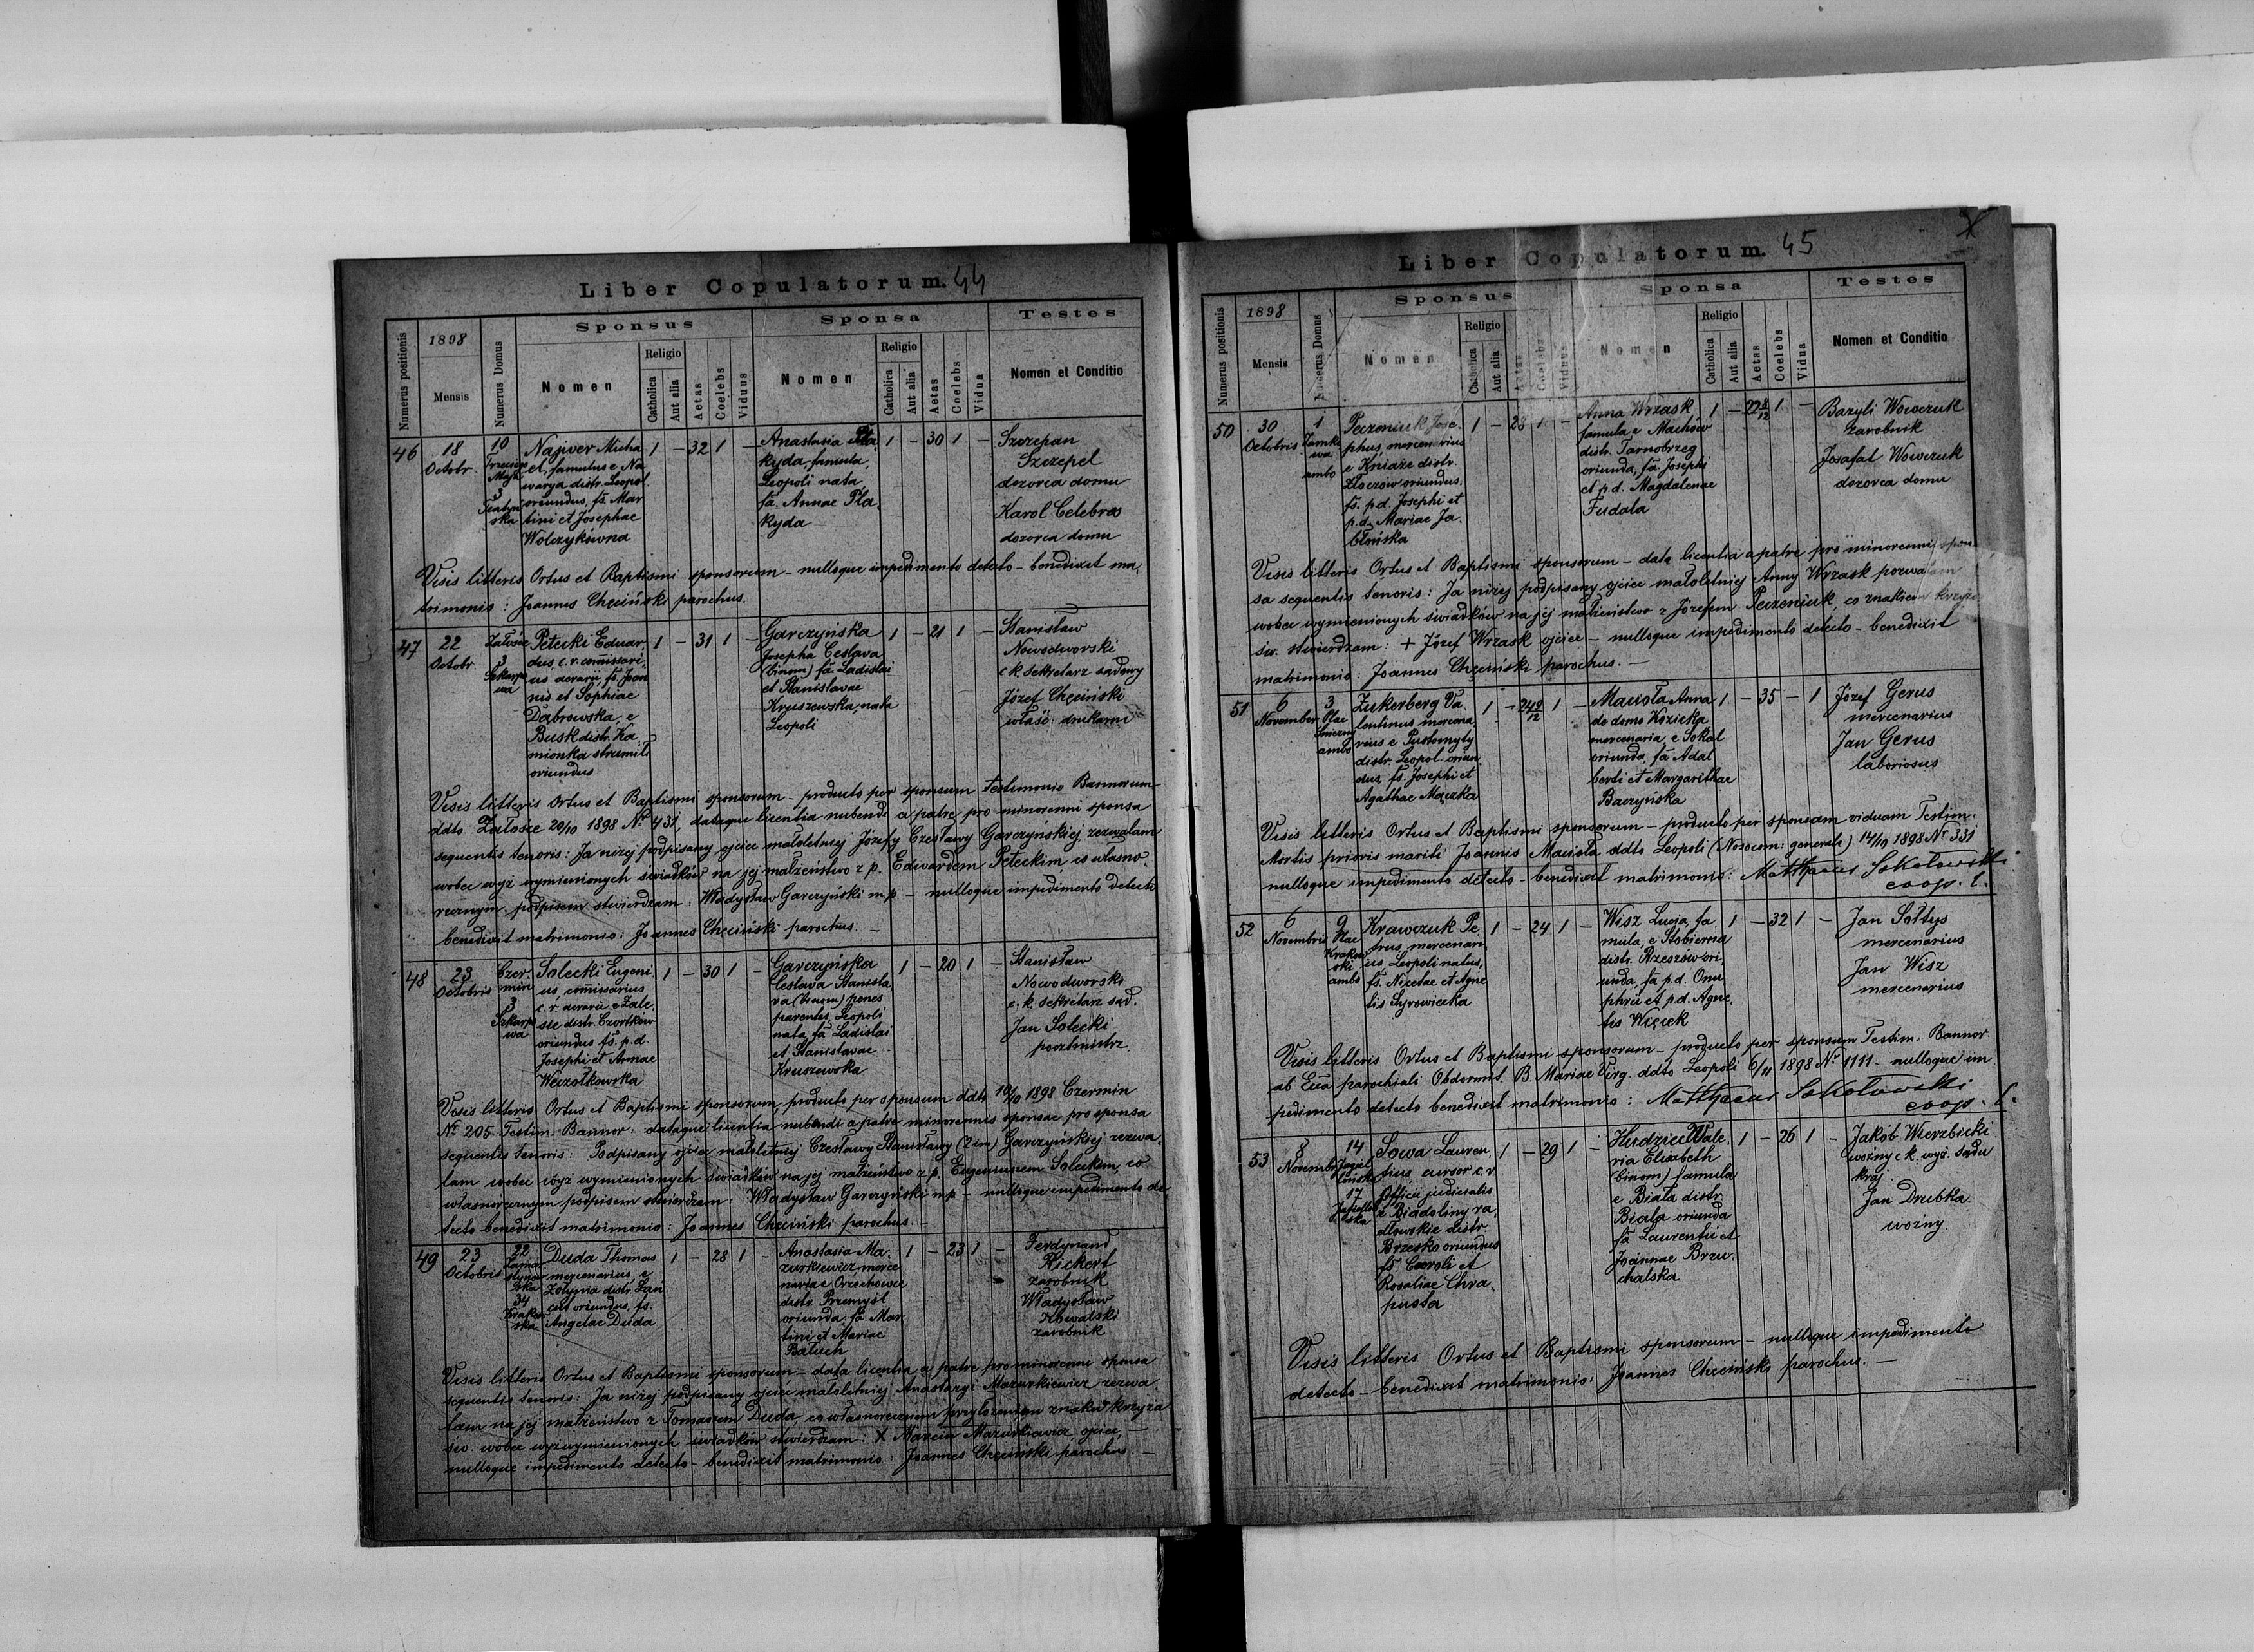 Liber Copulatorum. 44
Numerus positionis
1898
Mensis
Numerus Domus
Sponsus
Nomen
Religio
Catholica
Aut alia
Aetas
Coelebs
Viduus
Sponsa
Nomen
Religio
Catholica
Aut alia
Aetas
Coelebs
Vidua
Testes
Nomen et Conditio
46
18
Octobr.
10
Trzeciego
Maja
3
ska
Najwer Micha
el, famulus e Na
warya distr. Leopol
oriundus, fs. Mar
tini et Josephae
Wolczykówna
1 – 32 1 –
Anastasia Pla
kyda, famula,
Leopoli nata
fa. Annae Pla
kyda
1 – 30 1 –
Szczepan
Szczepel
dozorca domu
Karol Celebras
dozorca domu
Visis litteris Ortus et Baptismi sponsorum – nulloque impedimento detecto – benedixit ma
trimonio: Joannes Chęciński parochus.
47
22
Octobr.
Załośce
3
Szkarpo
wa
Petecki Eduar
dus, c. r. comissari
us aerarii, fs. Joan
nis et Sophiae
Dąbrowska, e
Busk distr. Ka
mionka strumił
oriundus
1 – 31 1 –
Garczyńska
Josepha Ceslava
(binom) fa Ladislai
et Stanislavae
Kruszewska, nata
Leopoli
1 – 21 1 –
Stanisław
Nowodworski
c k sekretarz sądowy
Józef Chęciński
właść: drukarni
Visis litteris Ortus et Baptismi sponsorum – producto per sponsum Testimonio Bannorum
ddto Załośce 20/10 1898 Nº 431, dataque licentia nubendi a patre pro minorenni sponsa
sequentis tenoris: Ja niżej podpisany ojciec małoletniej Józefy Czesławy Garczyńskiej, zezwalam
wobec wyż wymienionych świadków na jej małżeństwo z p. Edwardem Peteckim, co własno
ręcznym podpisem stwierdzam: Władysław Garczyński m.p. – nulloque impedimento detecto
benedixit matrimonio: Joannes Chęciński parochus. –
48
23
Octobris
Czer
min
3
Szkarpo
wa
Solecki Eugeni
us comissarius
c. r. aerarii e Zale
sie distr. Czortków
oriundus fs. p. d.
Josephi et Annae
Węzołkowska
1 – 30 1 –
Garczyńska
Ceslava Stanisla
va (binom) penes
parentes, Leopoli
nata, fa Ladislai
et Stanislavae
Kruszewska
1 – 20 1 –
Stanisław
Nowodworski
c. k. sekretarz sąd.
Jan Solecki
pocztmistrz.
Visis litteris Ortus et Baptismi sponsorum, producto per sponsum ddto 19/10 1898 Czermin
Nº 205 Testim. Bannor. dataque licentia nubendi a patre minorennis sponsae pro sponsa
sequentis tenoris: Podpisany ojciec małoletniej Czesławy Stanisławy (2 im) Garczyńskiej zezwa
lam wobec wyż wymienionych świadków na jej małżeństwo z p. Eugeniuszem Soleckim, co
własnoręcznym podpisem stwierdzam. Władysław Garczyński mp – nulloque impedimento de
tecto benedixit matrimonio: Joannes Chęciński parochus. –
49
23
Octobris
22
Zamar
stynow
ska
34
Krakow
ska
Duda Thomas
mercenarius, e
Żołynia distr. Łań
cut oriundus, fs.
Angelae Duda
1 – 28 1 –
Anastasia Ma
zurkiewicz merce
naria e Orzechowce
distr. Przemyśl
oriunda, fa Mar
tini et Mariae
Baluch
1 – 23 1 –
Ferdynand
Rickert
zarobnik
Władysław
Kowalski
zarobnik
Visis litteris Ortus et Baptismi sponsorum – data licentia a patre pro minorenni sponsa
sequentis tenoris: Ja niżej podpisany ojciec małoletniej Anastazyi Mazurkiewicz zezwa
lam na jej małżeństwo z Tomaszem Duda, co własnoręcznem przyłożeniem znaku krzyża
św. wobec wyżwymienionych świadków stwierdzam: X Marcin Mazurkiewicz ojciec, –
nulloque impedimento detecto – benedixit matrimonio: Joannes Chęciński parochus. –
Liber Copulatorum. 45
Numerus positionis
1898
Mensis
Numerus Domus
Sponsus
Nomen
Religio
Catholica
Aut alia
Aetas
Coelebs
Viduus
Sponsa
Nomen
Religio
Catholica
Aut alia
Aetas
Coelebs
Vidua
Testes
Nomen et Conditio
50
30
Octobris
1
Zamko
wa
ambo
Peczeniuk Jose
phus, mercenarius
e Kniaże distr.
Złoczów oriundus.
fs. p. d. Josephi et
p. d. Mariae Ja
błońska
1 – 28 1 –
Anna Wrzask
famula e Machów
distr. Tarnobrzeg
oriunda, fa. Josephi
et p. d. Magdalenae
Fudala
1 – 22 8/12 1 –
Bazyli Wowczuk
zarobnik
Josafat Wowczuk
dozorca domu
Visis litteris Ortus et Baptismi sponsorum – data licentia a patre pro minorenni spon
sa sequentis tenoris: Ja niżej podpisany ojciec małoletniej Anny Wrzask pozwalam
wobec wymienionych świadków na jej małżeństwo z Józefem Peczeniuk, co znakiem krzyża
św. stwierdzam: + Józef Wrzask ojciec – nulloque impedimento detecto – benedixit
matrimonio: Joannes Chęciński parochus. –
51
6
November
3
Plac
Śnieżny
ambo
Zukerberg Va
lentinus mercena
rius e Pustomyty
distr. Leopol. oriun
dus, fs. Josephi et
Agathae Mączka
1 – 24 9/12 1 –
Maciola Anna
de domo Kozicka
mercenaria, e Sokal
oriunda, fa Adal
berti et Margarithae
Baczyńska
1 – 35 – 1
Józef Gerus
mercenarius
Jan Gerus
laboriosus
Visis litteris Ortus et Baptismi sponsorum – producto per sponsam viduam Testim.
Mortis prioris mariti Joannis Maciola ddto Leopoli (Nosocom: generale) 14/10 1898 Nº 331
nulloque impedimento detecto – benedixit matrimonio: Matthaeus Sokołowski
coop. l.
52
6
Novembris
9
Plac
Krakow
ski
ambo
Krawczuk Pe
trus, mercenari
us Leopoli natus,
fs. Nicetae et Agne
tis Syrowiecka
1 – 24 1 –
Wisz Lucia, fa
mula, e Stobierna
distr. Rzeszów ori
unda, fa p. d. Onu
phrii et p. d. Agne
tis Więcek
1 – 32 1 –
Jan Sołtys
mercenarius
Jan Wisz
mercenarius
Visis litteris Ortus et Baptismi sponsorum – producto per sponsum Testim. Bannor.
ab Ecca parochiali Obdormit. B. Mariae Virg. ddto Leopoli 6/11 1898 Nº 1111 – nulloque im
pedimento detecto benedixit matrimonio: Matthaeus Sokołowski
coop. l.
53
8
Novembr
14
Jagiel
lońska
17
Sowa Lauren
tius, cursor c. r.
Officii judicialis
z Biadoliny ra
dłowskie distr.
Brzesko oriundus
fs Caroli et
Rosaliae Chra
pusta
1 – 29 1 –
Hudziec Vale
ria Elisabeth
(binom) famula
e Biała distr.
Biała oriunda
fa Laurentii et
Joannae Brzu
chalska
1 – 26 1 –
Jakób Wierzbicki
woźny c k. wyż. sądu
kraj.
Jan Drubka
woźny.
Visis litteris Ortus et Baptismi sponsorum – nulloque impedimento
detecto – benedixit matrimonio: Joannes Chęciński parochus. –